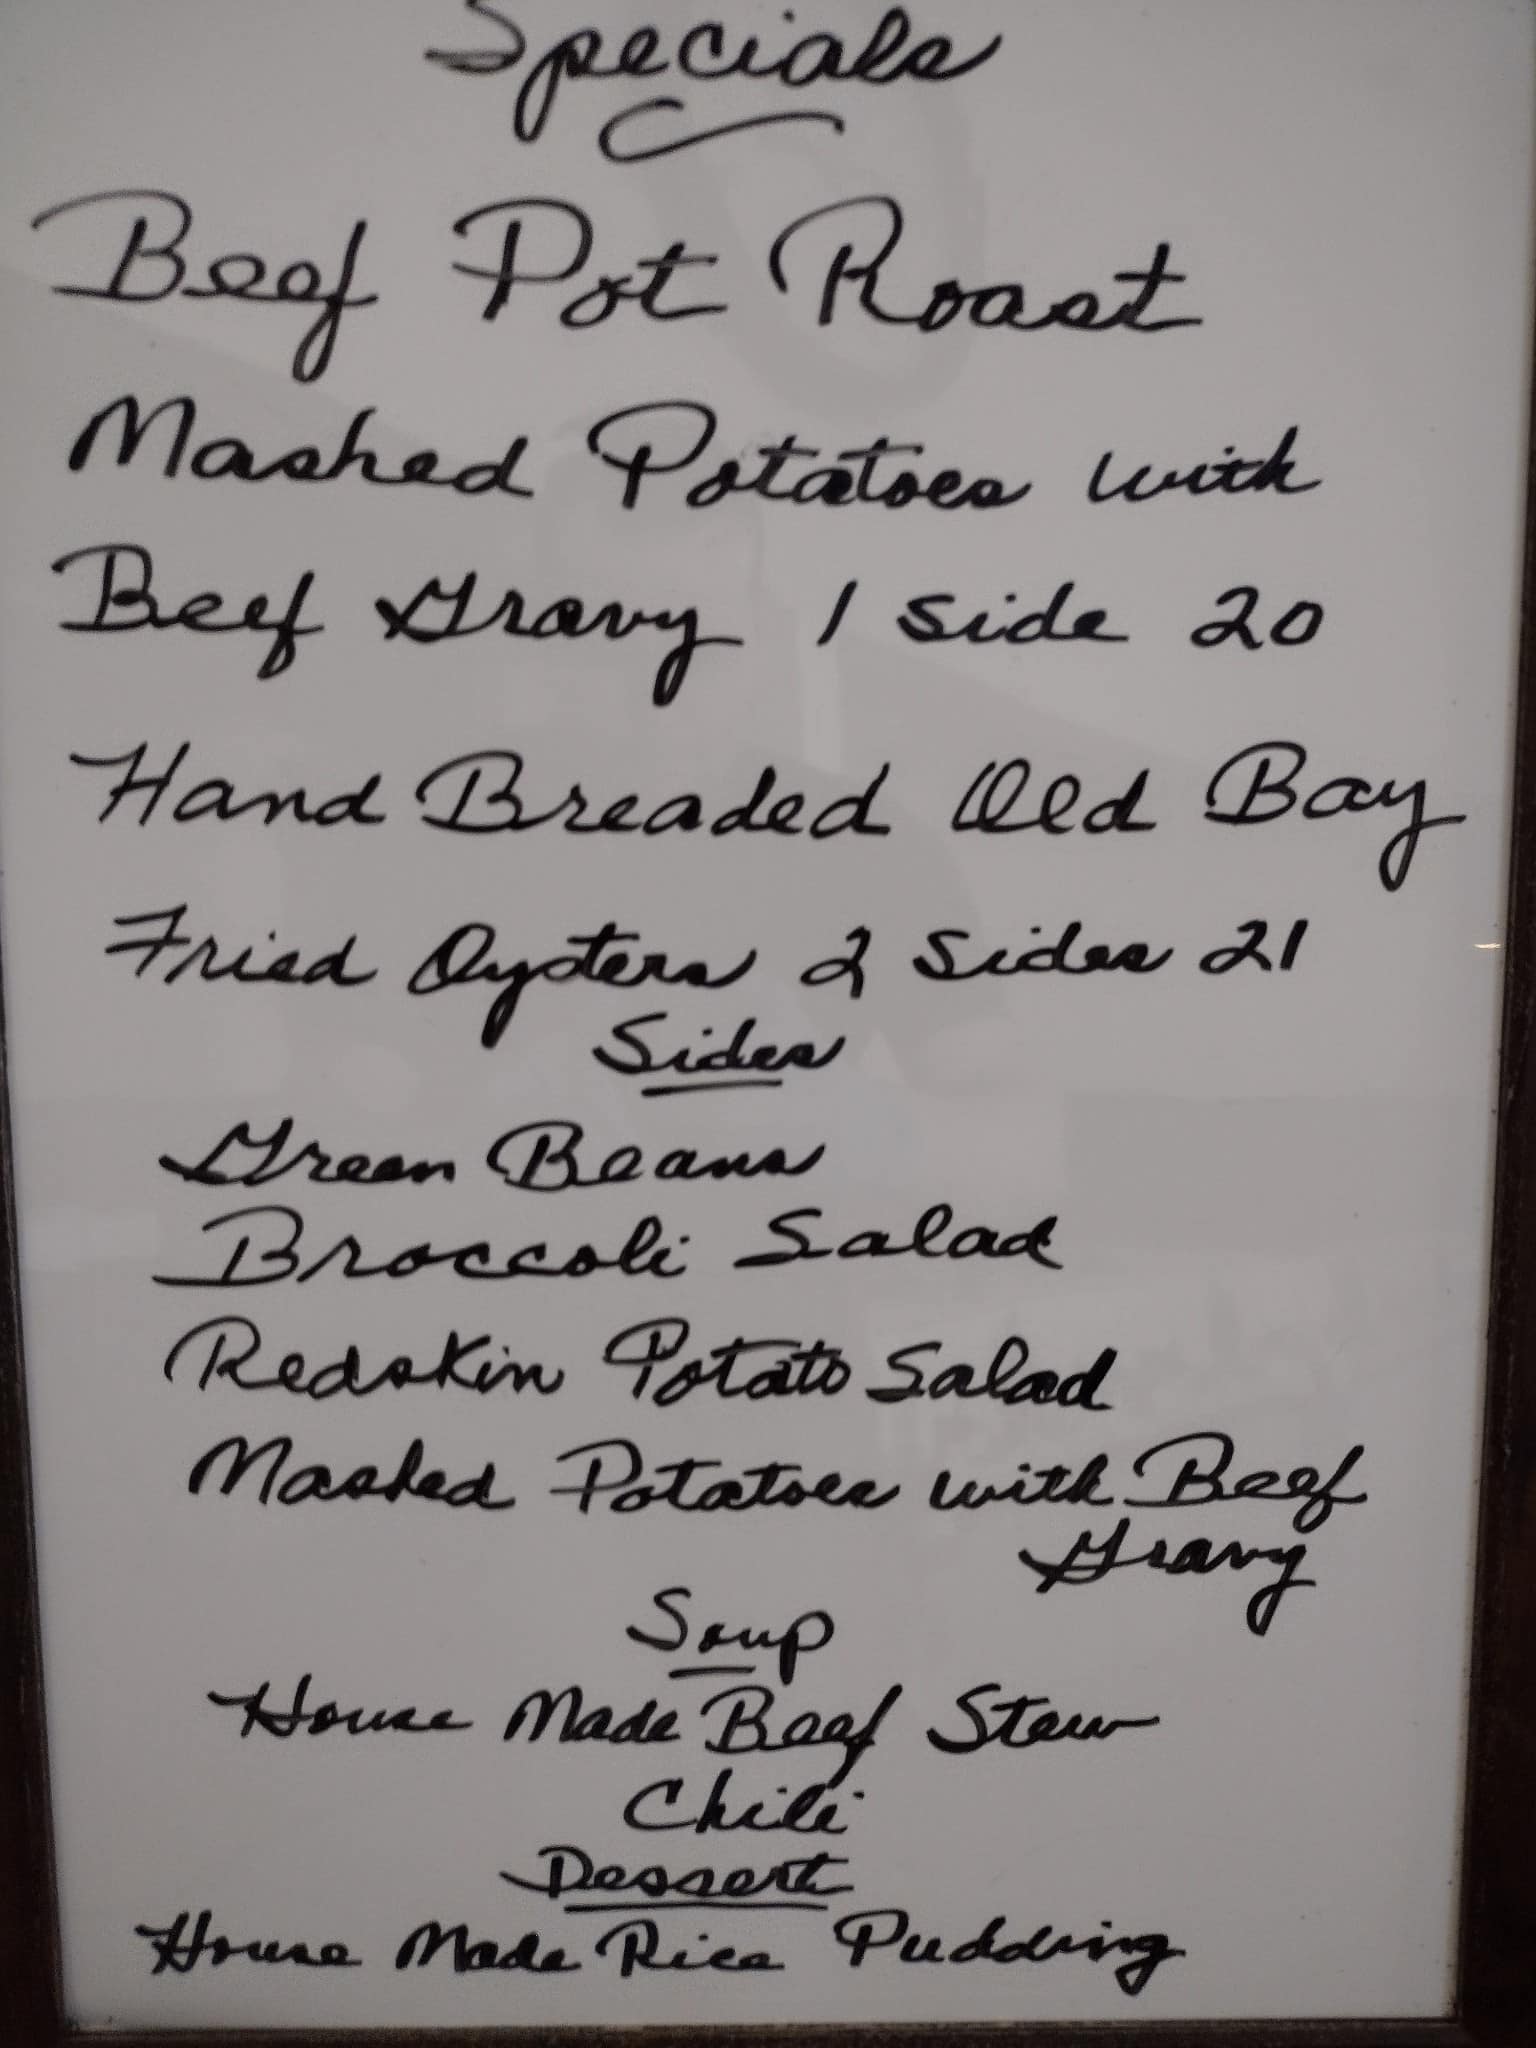 Specials
Beef Pot Roast
Mashed Potatoes with
Beef Gravy 1 Side 20
Hand Breaded Old Bay
Fried Oysters 2 Sides 21
Sides
Green Beans
Broccoli Salad
Redskin Potato Salad
Mashed Potatoes with Beef
Gravy
Soup
House Made Beef Stew
Chili
Dessert
House Made Rice Pudding